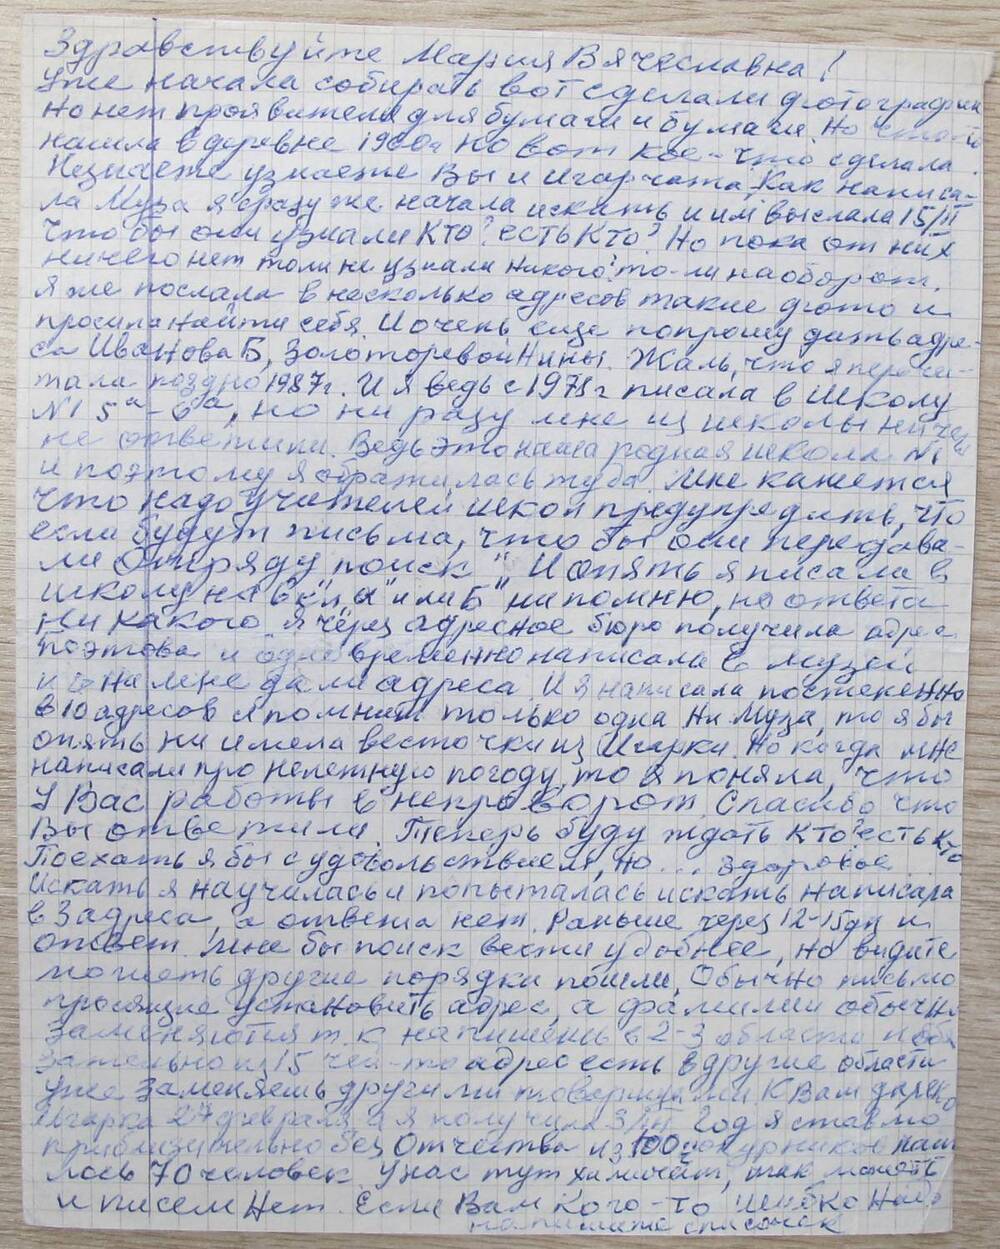 Здравствуйте Мария Вячеславна!
Уже начала собирать вот сделали фотографии
Но нет проявителя для бумаги и бумаги. Но что-то
нашла в деревне 1960г но вот кое-что сделала
Незнаете узнаете Вы и игарчата. Как написа-
ла Муза я сразу же начала искать и им выслала 15/III
Что бы они узнали Кто? есть Кто? Но пока от них
ничего нет толи не узнали никого? то-ли наоборот.
Я же послала в несколько адресов такие фото и
просила найти себя. И очень еще попрошу дать адре-
са Иванова Б, Золоторевой Нины. Жаль, что я прочи-
тала поздно 1987г. И я ведь с 1978г писала в школу
№1 5а-6а, но ни разу мне из школы ничего
не ответили. Ведь это наша родная школа №1
и поэтому я обратилась туда. Мне кажется
что надо учителей школ предупредить, что
если будут письма, что бы они передава-
ли отряду "поиск" И опять я писала в
школу на 6 кл "а" или "Б" ни помню, но ответа
ни какого. Я через адресное бюро получила адрес
Поэтова и одновременно написала в музей
и на мне дали адреса. И я написала постепенно
в 10 адресов и помнит только одна Ни Муза, то я бы
опять ни имела весточки из Игарки. Но когда мне
написали про нелетную погоду, то я поняла, что
у Вас работы в непроворот. Спасибо что
Вы ответили. Теперь буду ждать Кто? есть Кто
Поехать я бы с удовольствием, но ... здоровье
Искать я научилась и попыталась искать написала
в 3 адреса, а ответа нет. Раньше через 12-15 дн и
ответ. Мне бы поиск вести удобнее, но видите
может другие порядки пошли. Обычно письмо
просящие установить адрес, а фамилии обычно
заменяются т.к. напишешь в 2-3 области и обя
зательно из 15 чей-то адрес есть в другие области
уже заменяешь другими товарищами К Вам далеко
Игарка 27 февраля а я получила 3/III Год я ставлю
приблизительно без Отчества из 100 сокурников наш
лось 70 человек У нас тут химичат, так может
и писем Нет. Если Вам Кого-то шибко Надо
напишите списочек